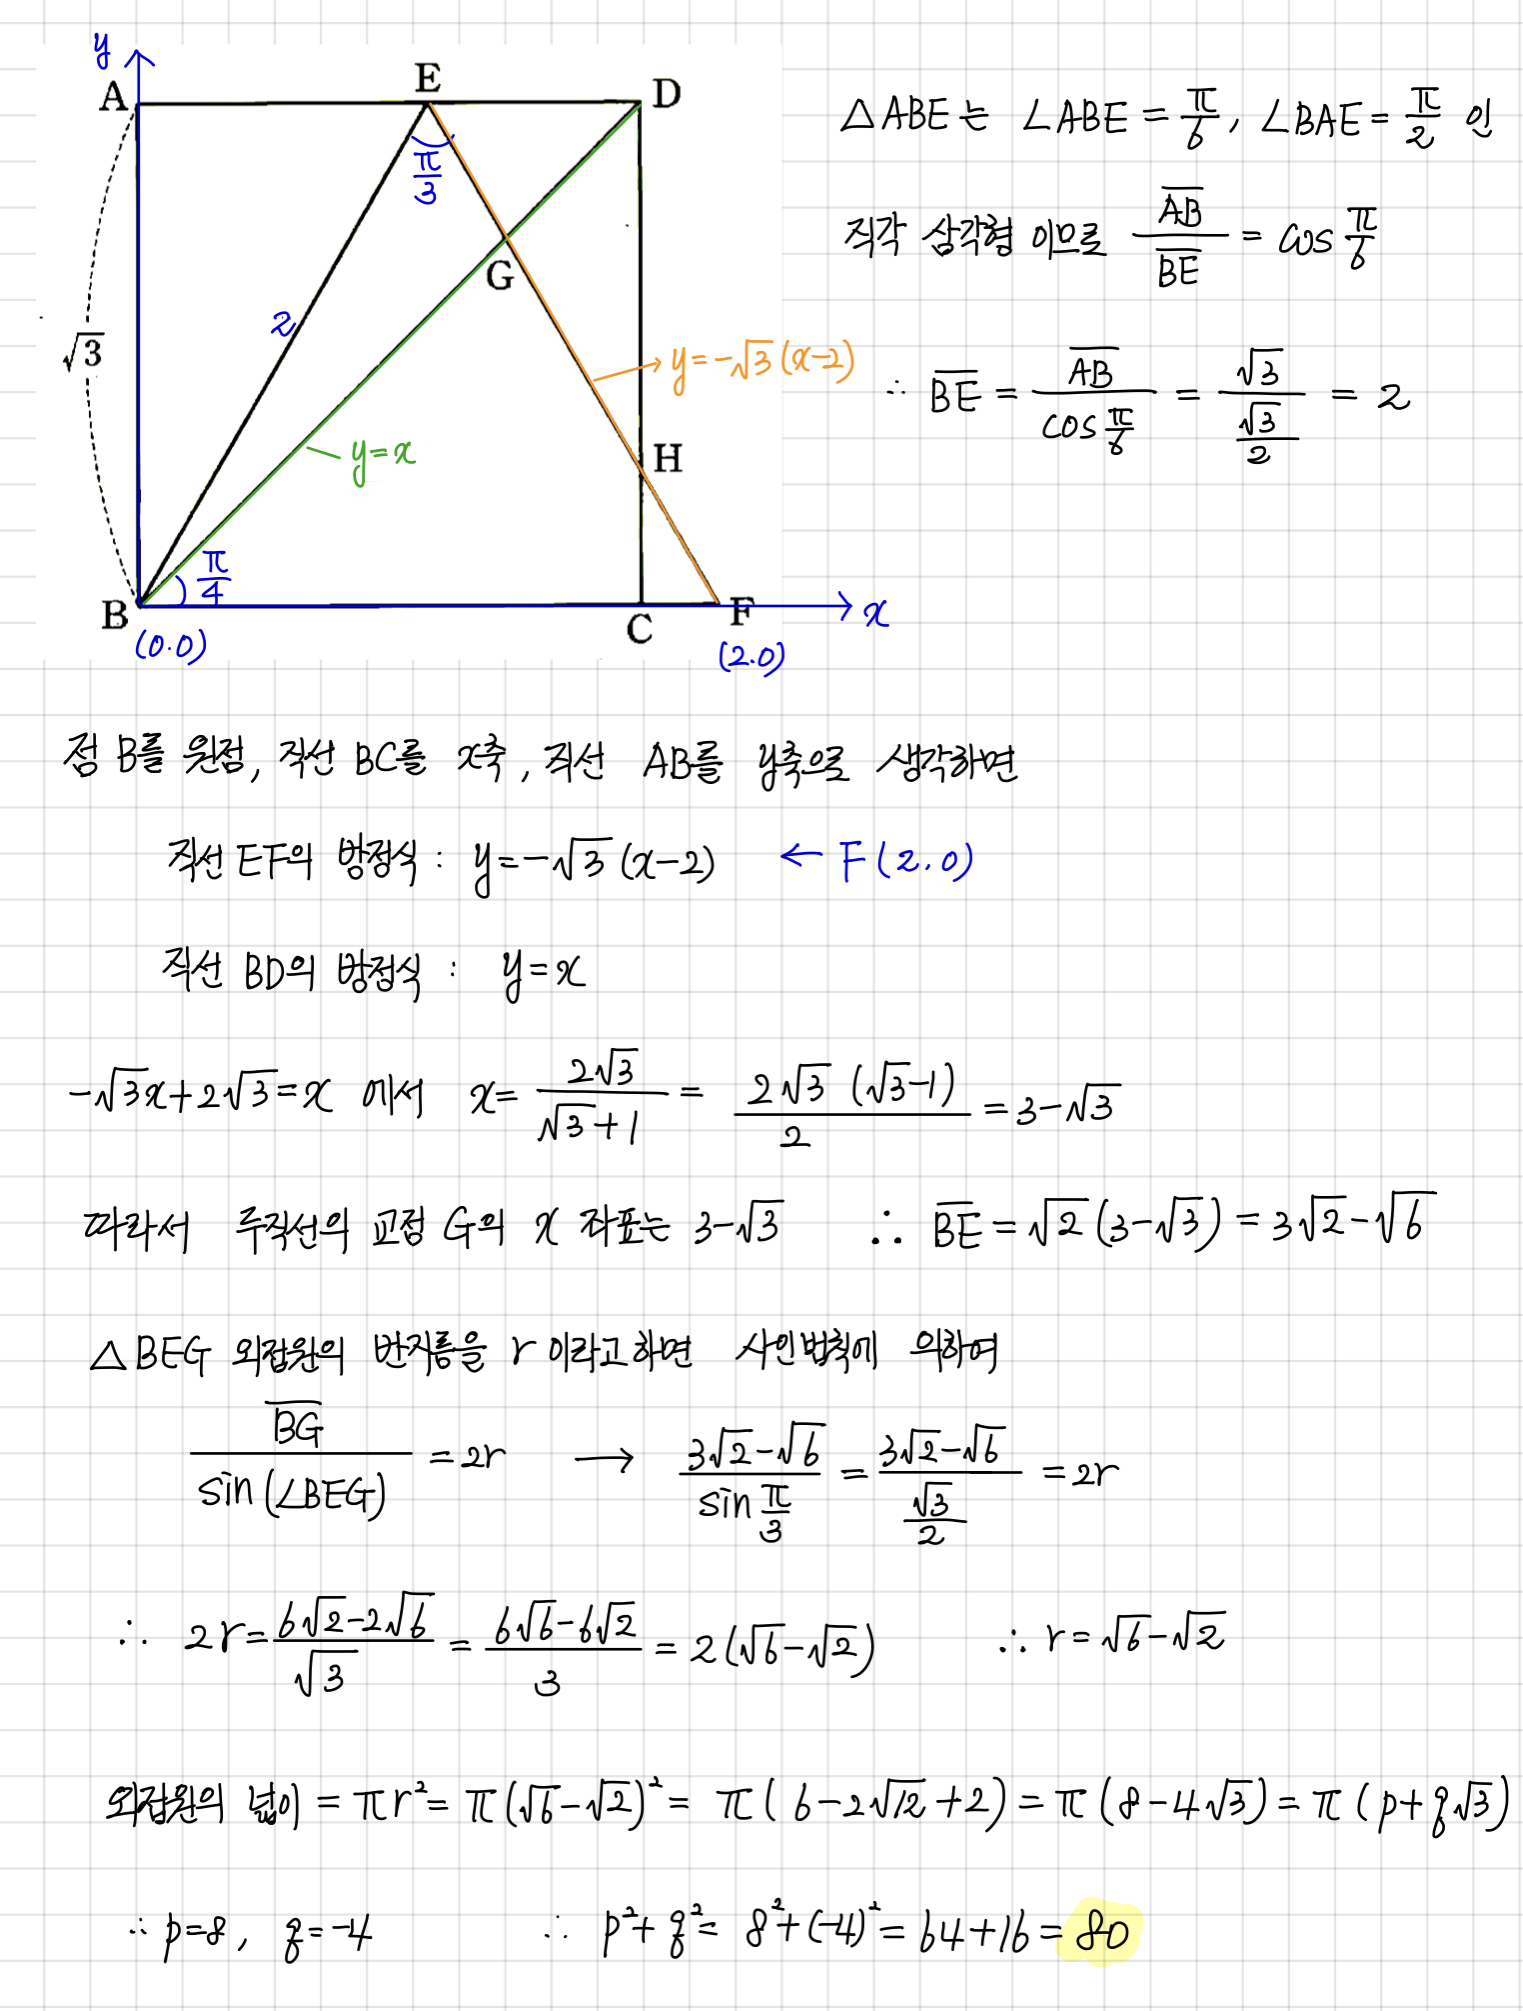 y
A E D
π/3
G
2
√3
y=-√3(x-2)
y=x
H
π/4
B C F x
(0.0) (2.0)
△ABE는 ∠ABE = π/6, ∠BAE = π/2 인
직각 삼각형 이므로 AB/BE = cos π/6
∴ BE = AB/cos π/6 = √3/(√3/2) = 2
점 B를 원점, 직선 BC를 x축, 직선 AB를 y축으로 생각하면
직선 EF의 방정식 : y=-√3(x-2) ← F(2.0)
직선 BD의 방정식 : y=x
-√3x+2√3=x 에서 x= 2√3/(√3+1) = 2√3(√3-1)/2 = 3-√3
따라서 두직선의 교점 G의 x 좌표는 3-√3 ∴ BE=√2(3-√3)=3√2-√6
△BEG 외접원의 반지름을 r이라고하면 사인법칙에 의하여
BG/sin(∠BEG) = 2r → (3√2-√6)/sin π/3 = (3√2-√6)/(√3/2) = 2r
∴ 2r= (6√2-2√6)/√3 = (6√6-6√2)/3 = 2(√6-√2) ∴ r=√6-√2
외접원의 넓이 = πr²= π(√6-√2)²= π(6-2√12+2)=π(8-4√3)=π(p+q√3)
∴ p=8, q=-4 ∴ p²+q²= 8²+(-4)²=64+16=80